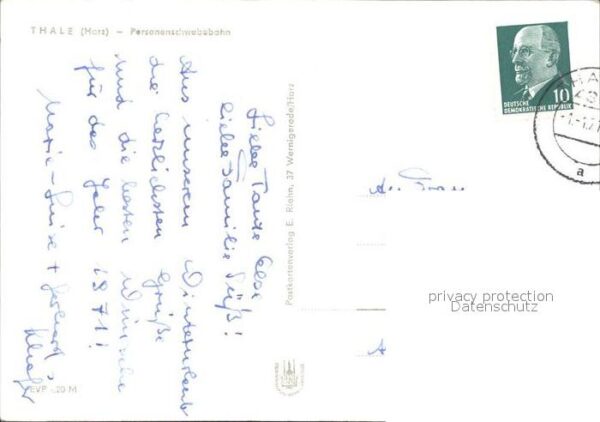 THALE (Harz) – Personenschwebebahn
Liebe Tante Else
liebe Familie Süß!
Aus unserem Winterurlaub
die herzlichsten Grüße
und die besten Wünsche
für das Jahr 1971!
Marie-Luise + Gerhard
EVP -,20 M
Postkartenverlag E. Riehn, 37 Wernigerode/Harz
10
DEUTSCHE
DEMOKRATISCHE REPUBLIK
a
privacy protection
Datenschutz